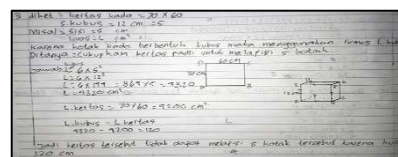 3 diket = kertas kado = 70 x 60
S.kubus = 12 cm = S
Misal = sisi = S cm
Luas = L cm²
karena kotak kado berbentuk kubus maka menggunakan rumus L.
Ditanya = Cukupkah kertas padi untuk melapisi 5 kotak
Jawab L = 6 x S²
60 cm
L = 6 x 12²
70 cm
L = 6 x 144 = 864 x 5 = 4320
L = 4320 cm²
L.kertas = 70 x 60 = 4200 cm²
L.kubus - L kertas
4320 - 4200 = 120
Jadi kertas tersebut tidak dapat melapisi 5 kotak tersebut karena
120 cm